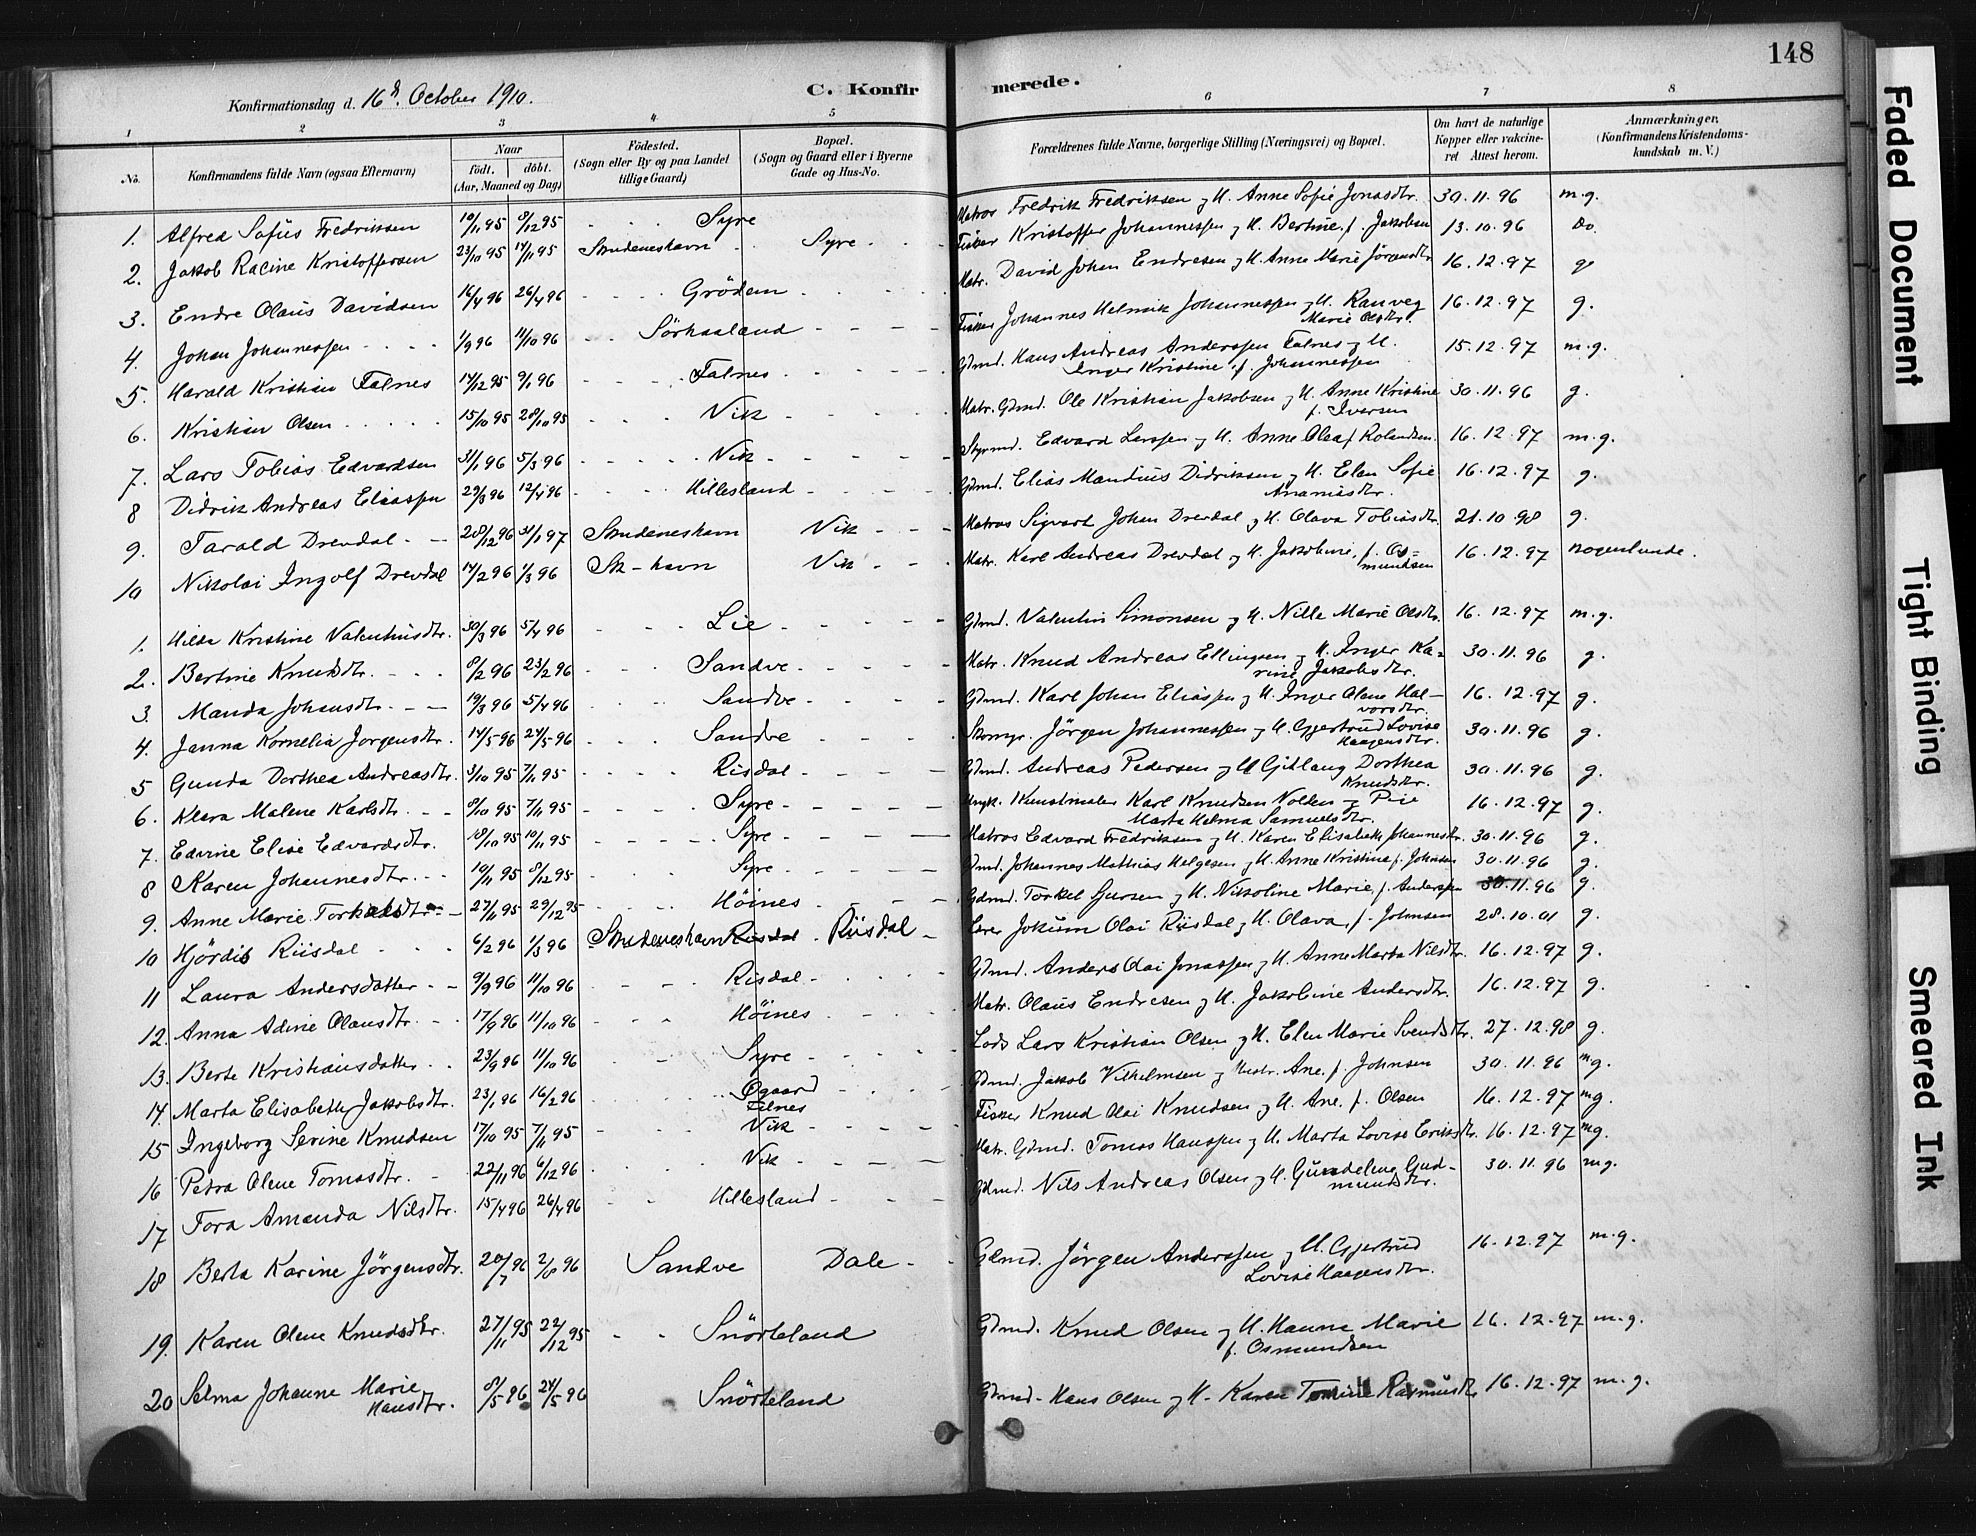 148
Konfirmationsdag d. 16de October 1910.
C. Konfirmerede.
1 2 3 4 5 6 7 8
No.
Konfirmandens fulde Navn (ogsaa Efternavn)
Naar
født. døbt.
(Aar, Maaned og Dag)
Fødested.
(Sogn eller By og paa Landet
tillige Gaard)
Bopæl.
(Sogn og Gaard eller i Byerne
Gade og Hus-No.
Forældrenes fulde Navne, borgerlige Stilling (Næringsvei) og Bopæl.
Om havt de naturlige
Kopper eller vakcine-
ret Attest herom.
Anmærkninger.
(Konfirmandens Kristendoms-
kundskab m. V.)
1. Alfred Sofus Fredriksen 10/11 95 8/12 95 Syre Matros Fredrik Fredriksen og H. Anne Sofie Jonasdtr. 30.11.96 m.g.
2. Jakob Racine Kristoffersen 23/10 95 17/11 95 Skudeneshavn Syre Fisker Kristoffer Johannessen og H. Bertine, f. Jakobsen 13.10.96 Do.
3. Endre Olaus Davidsen 16/4 96 26/4 96 Grödem Matr. David Johan Endresen og H. Anne Marie Jörgensdtr 16.12.97 g.
4. Johan Johannessen 1/9 96 11/10 96 Sörhaaland Fisker Johannes Helmik Johannessen og H. Ranveg
Marie Olsdtr. 16.12.97 g.
5. Harald Kristian Falnes 14/12 95 9/1 96 Falnes Gdmd. Hans Andreas Anderssen Falnes og H.
Inger Kristine f. Johannessen 15.12.97 m.g.
6. Kristian Olsen 15/10 95 28/10 95 Vik Matr. Gdmd. Ole Kristian Jakobsen og H. Anne Kristine
f. Iversen 30.11.96 g.
7. Lars Tobias Edvardsen 31/1 96 5/3 96 Vik Styrmd. Edvard Larssen og H. Anne Olea f. Rolandsen. 16.12.97 m.g.
8 Didrik Andreas Eliassen 29/3 96 12/4 96 Hillesland Gdmd. Elias Mandius Didriksen og H. Elen Sofie
Ananiasdtr. 16.12.97 g.
9. Tarald Drevdal 28/12 96 31/1 97 Skudeneshavn Vik Matros Sigvart Johan Drevdal og H. Olava Tobiasdtr. 21.10.98 g.
10 Nikolai Ingolf Drevdal 14/2 96 1/3 96 Sk-havn Vik Matr. Karl Andreas Drevdal og H. Jakobine, f. Os=
mundsen 16.12.97 nogenlunde.
1. Hilda Kristine Valentinsdtr. 30/3 96 5/4 96 Lie Gdmd. Valentin Simonsen og H. Nille Marie Olsdtr. 16.12.97 m.g.
2. Bertine Knutsdtr. 8/2 96 23/2 96 Sandve Matr. Knud Andreas Ellingsen og H. Inger Ka=
rine Jakobsdtr. 30.11.96 g.
3. Manda Johansdtr. 19/3 96 5/4 96 Sandve Gdmd. Karl Johan Eliassen og H. Inger Olene Hal-
vorsdtr. 16.12.97 g.
4. Janna Kornelia Jorgensdtr. 14/5 96 24/5 96 Sandve Skomgr. Jörgen Johannessen og H. Gjertrud Lovise
Haagensdtr. 30.11.96 g.
5 Gunda Dorthea Andreasdtr. 3/10 95 7/11 95 Risdal Gdmd. Andreas Pedersen og H Gitlaug Dorthea
Knudsdtr. 30.11.96 g.
6. Klara Malene Karlsdtr. 8/10 95 7/11 95 Syre Ungk. Kunstmaler Karl Knudsen Nolden og Pie
Marta Helma Samuelsdtr. 16.12.97 g.
7. Edvine Elise Edvardsdtr. 18/10 95 10/11 95 Syre Matros Edvard Fredriksen og H. Karen Elisabeth Johannesdtr. 30.11.96 g.
8 Karen Johannesdtr. 19/11 95 8/12 95 Syre Gdmd. Johannes Mathias Helgesen og H. Anne Kristine f. Johnsen 30.11.96 g.
9. Anne Marie Torkelsdtr. 27/11 95 29/12 95 Höines Gdmd. Torkel Gursen og H. Nikoline Marie, f. Anderssen 30.11.96 g.
10 Hjördis Riisdal 6/2 96 1/3 96 Skudeneshavn Riisdal Riisdal Lærer Jokum Olai Riisdal og H. Olava, f. Johnsen 28.10.01 g.
11 Laura Andersdatter 9/9 96 11/10 96 Risdal Gdmd. Anders Olai Jonassen og H. Anne Marta Nilsdtr. 16.12.97 g.
12. Anna Adine Olausdtr. 17/9 96 11/10 96 Höines Matr. Olaus Endresen og H. Jakobine Andersdtr. 16.12.97 g.
13. Berte Kristiansdatter 23/9 96 11/10 96 Syre Lods Lars Kristian Olsen og H. Elen Marie Svendsdtr. 27.12.98 g.
14. Marta Elisabeth Jakobsdtr. 23/1 96 16/2 96 Øgaard
Falnes Gdmd. Jakob Vilhelmsen og Hustr. Ane, f. Johnsen 30.11.96 mg.
15 Ingeborg Serine Knudsen 17/10 95 7/11 95 Vik Fisker Knud Olai Knudsen og H. Ane, f. Olsen 16.12.97 mg.
16 Petra Olene Tomasdtr. 22/11 96 6/12 96 Vik Matr. Gdmd. Tomas Hanssen og H. Marta Lovise Eriksdtr. 16.12.97 mg.
17 Tora Amanda Nilsdtr. 15/4 96 26/4 96 Hillesland Gdmd. Nils Andreas Olsen og H. Gundeline Gud-
mundsdtr. 30.11.96 m.g.
18 Berta Karine Jörgensdtr. 20/7 96 2/8 96 Sandve Dale Gdmd. Jörgen Anderssen og H. Gjertrud
Lovise Haagensdtr. 16.12.97 m.g.
19. Karen Olene Knudsdtr. 27/11 95 22/12 95 Snörteland Gdmd. Knud Olsen og H. Hanne Marie
f. Osmundsen 16.12.97 m.g.
20 Selma Johanne Marie
Hansdtr. 8/5 96 24/5 96 Snörteland Gdmd. Hans Olsen og H. Karen Tomine Rasmusdtr 16.12.97 m.g.
Faded Document
Tight Binding
Smeared Ink